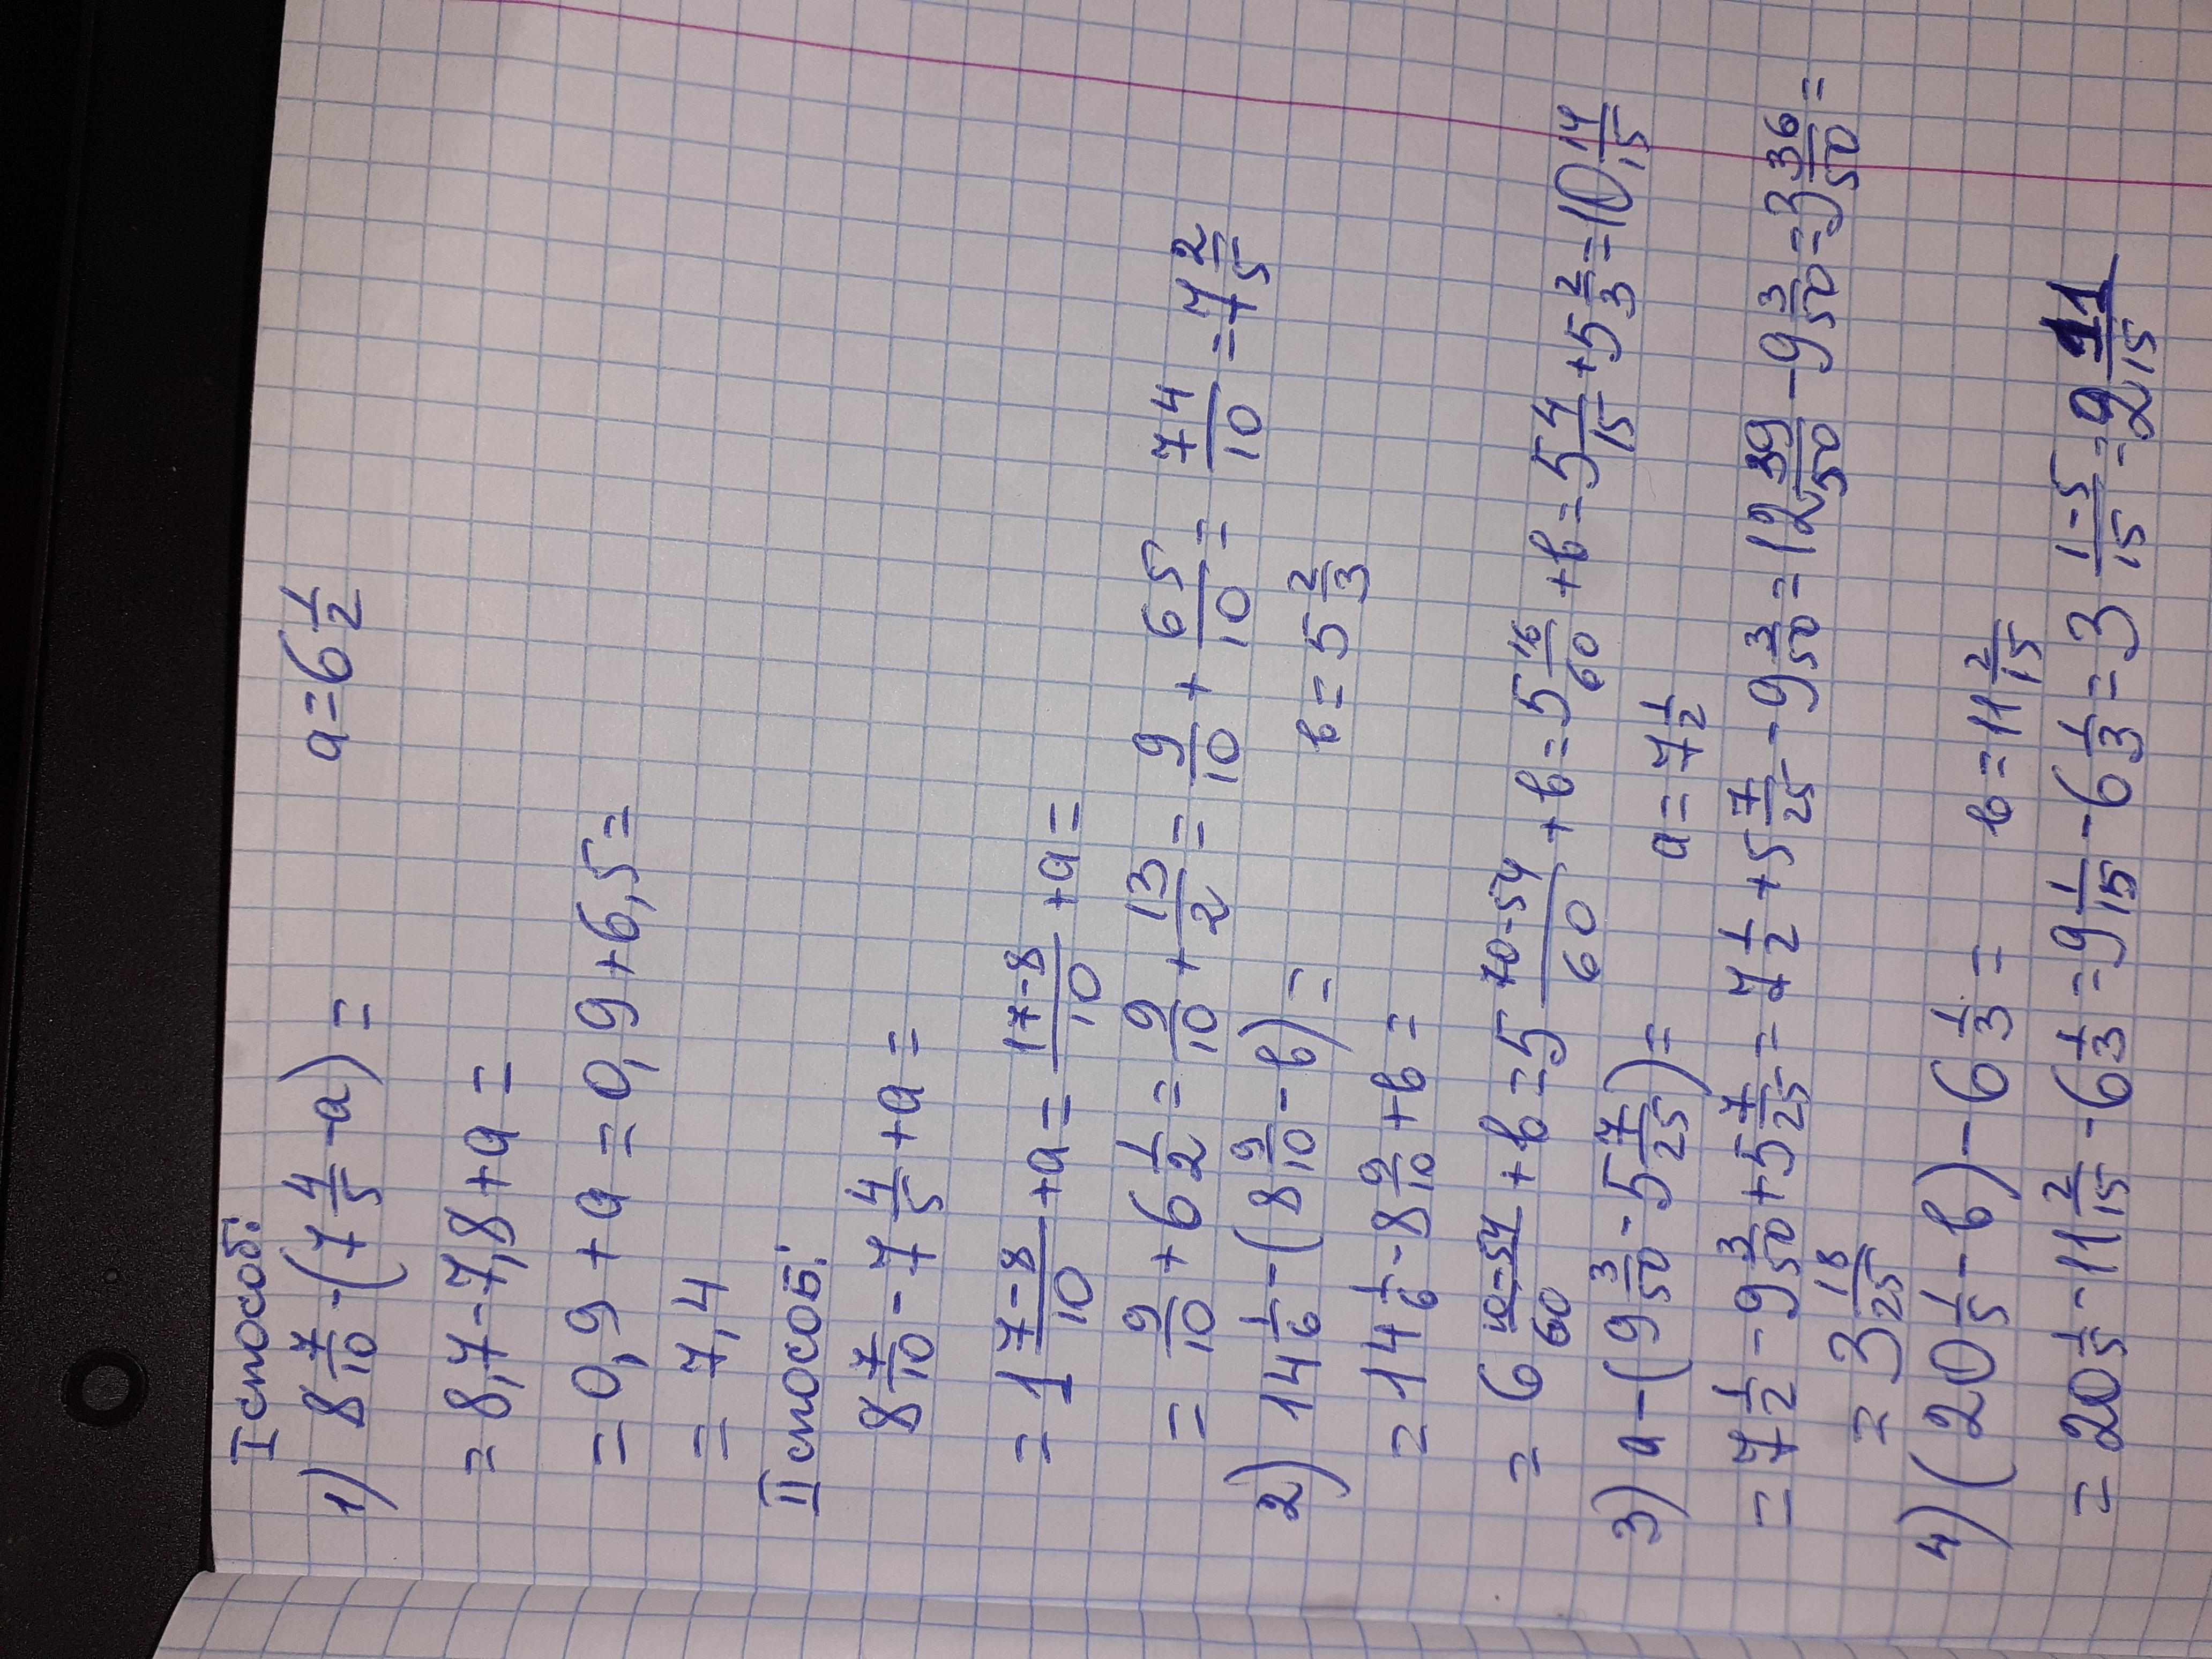 I способ:
1) 8 7/10 - (7 4/5 - a) =        a = 6 1/2
= 8,7 - 7,8 + a =
= 0,9 + a = 0,9 + 6,5 =
= 7,4
II способ:
8 7/10 - 7 4/5 + a =
= 1 (7-8)/10 + a = (17-8)/10 + a =
= 9/10 + 6 1/2 = 9/10 + 13/2 = 9/10 + 65/10 = 74/10 = 7 2/5
2) 14 1/6 - (8 9/10 - в) =        в = 5 2/3
= 14 1/6 - 8 9/10 + в =
= 6 (10-54)/60 + в = 5 (70-54)/60 + в = 5 16/60 + в = 5 4/15 + 5 2/3 = 10 14/15
3) a - (9 3/50 - 5 7/25) =        a = 7 1/2
= 7 1/2 - 9 3/50 + 5 7/25 = 7 1/2 + 5 7/25 - 9 3/50 = 12 39/50 - 9 3/50 = 3 36/50 =
= 3 18/25
4) (20 1/5 - в) - 6 1/3 =        в = 11 2/15
= 20 1/5 - 11 2/15 - 6 1/3 = 9 1/15 - 6 1/3 = 3 (1-5)/15 = 2 11/15